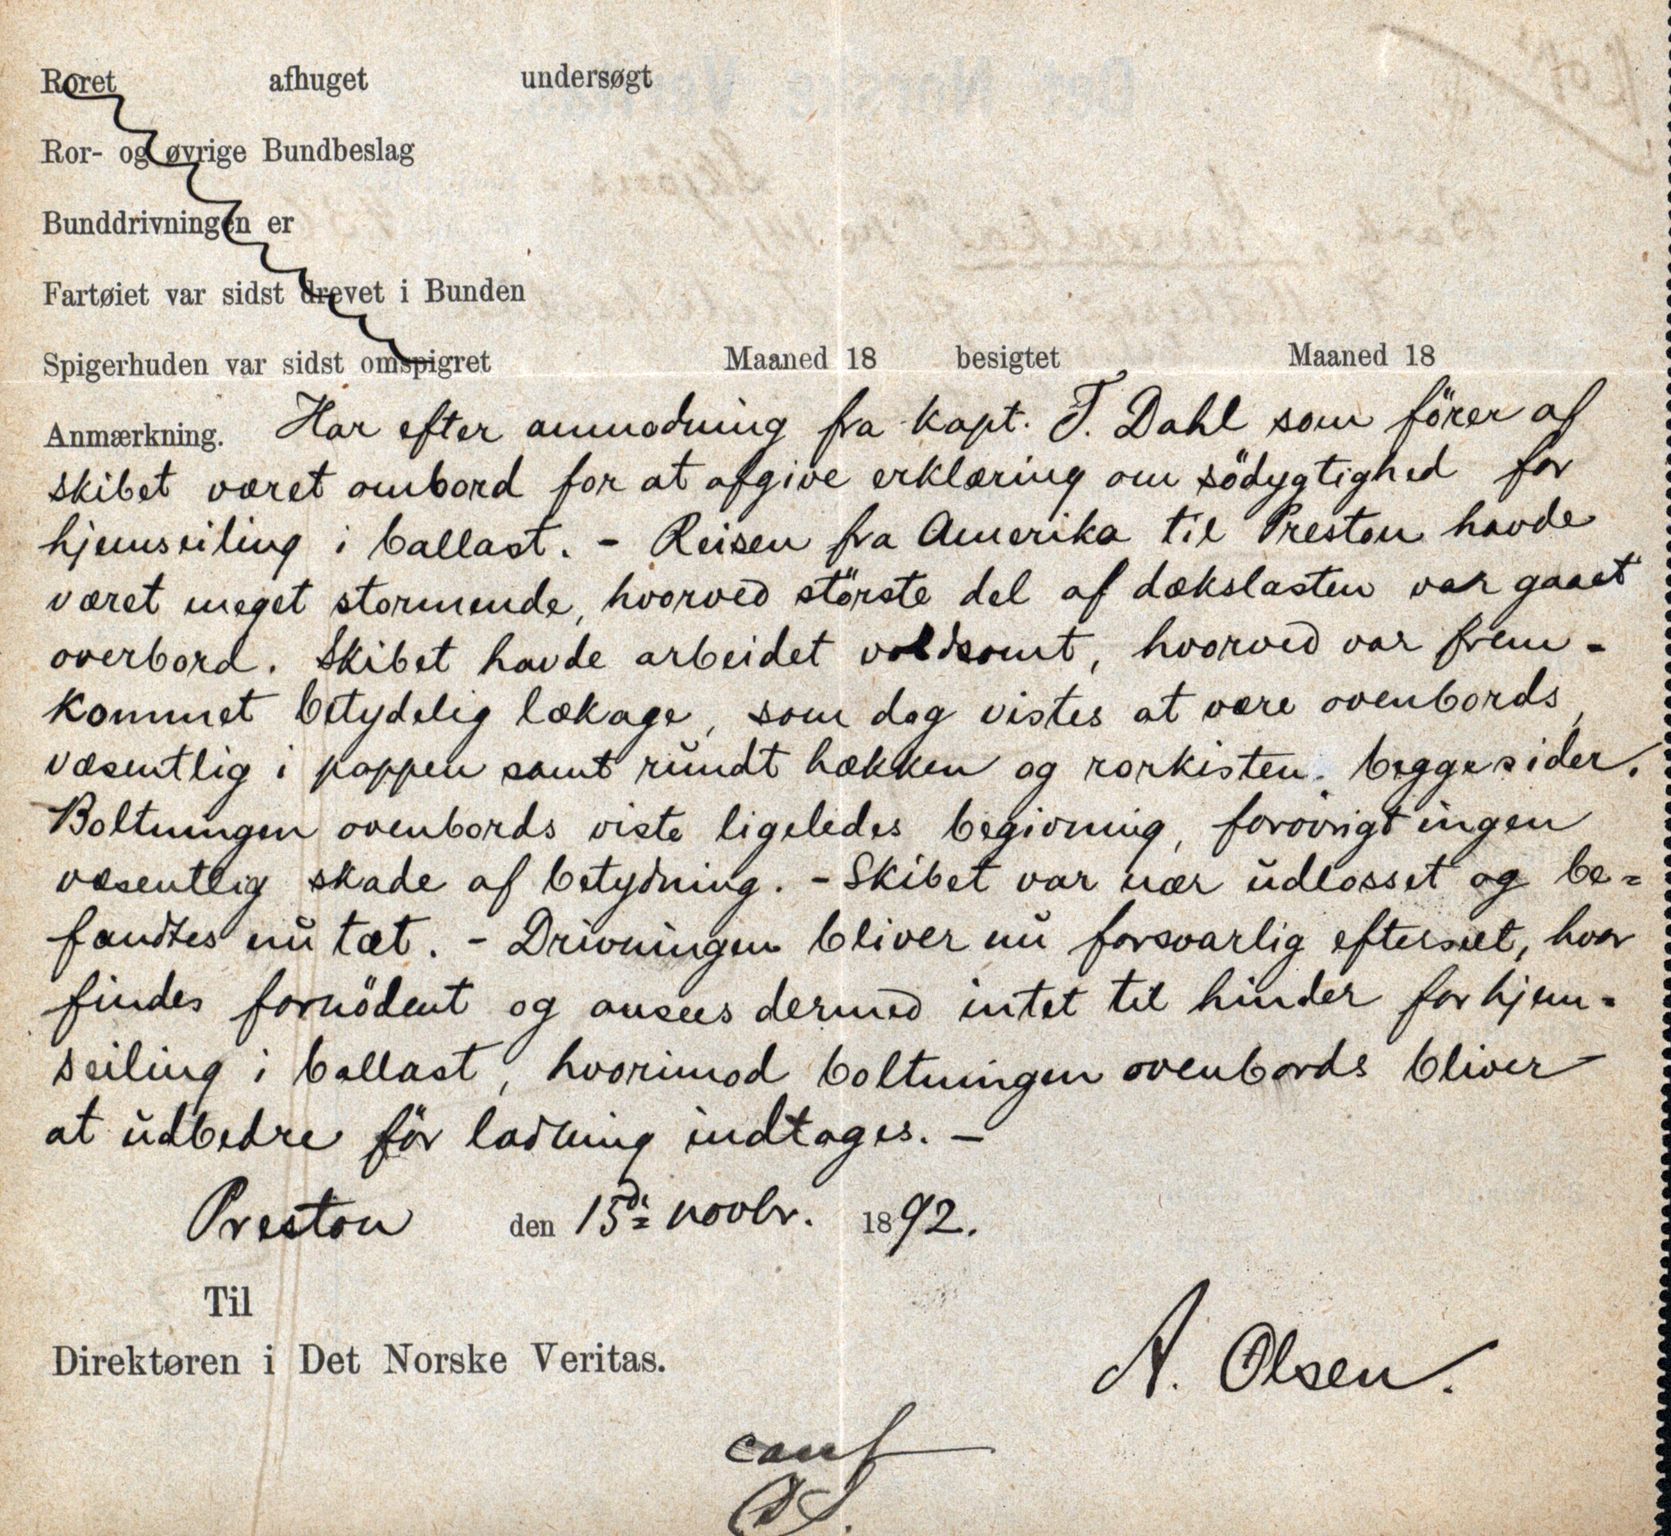 Roret afhuget undersøgt
Ror- og øvrige Bundbeslag
Bunddrivningen er
Fartøiet var sidst drevet i Bunden
Spigerhuden var sidst omspigret Maaned 18 besigtet Maaned 18
Anmærkning. Har efter anmodning fra kapt. T. Dahl som förer af
skibet været ombord for at afgive erklæring om södygtighed for
hjemseiling i ballast. - Reisen fra Amerika til Preston havde
været meget stormende, hvorved störste del af dækslasten var gaaet
overbord. Skibet havde arbeidet voldsomt, hvorved var frem-
kommet betydelig lækage, som dog vistes at være ovenbords,
væsentlig i poppen samt rundt hækken og rorkisten. begge sider.
Boltningen ovenbords viste ligeledes begivning, forövrigt ingen
væsentlig skade af betydning. - Skibet var nær udlosset og be=
fandtes nu tæt. - Drivningen bliver nu forsvarlig efterseet, hvor
findes fornödent og ansees dermed intet til hinder for hjem=
seiling i ballast, hvorimod boltningen ovenbords bliver
at udbedre för ladning indtages. -
Preston den 15de novbr. 1892.
Til
Direktøren i Det Norske Veritas.
A. Olsen.
conf